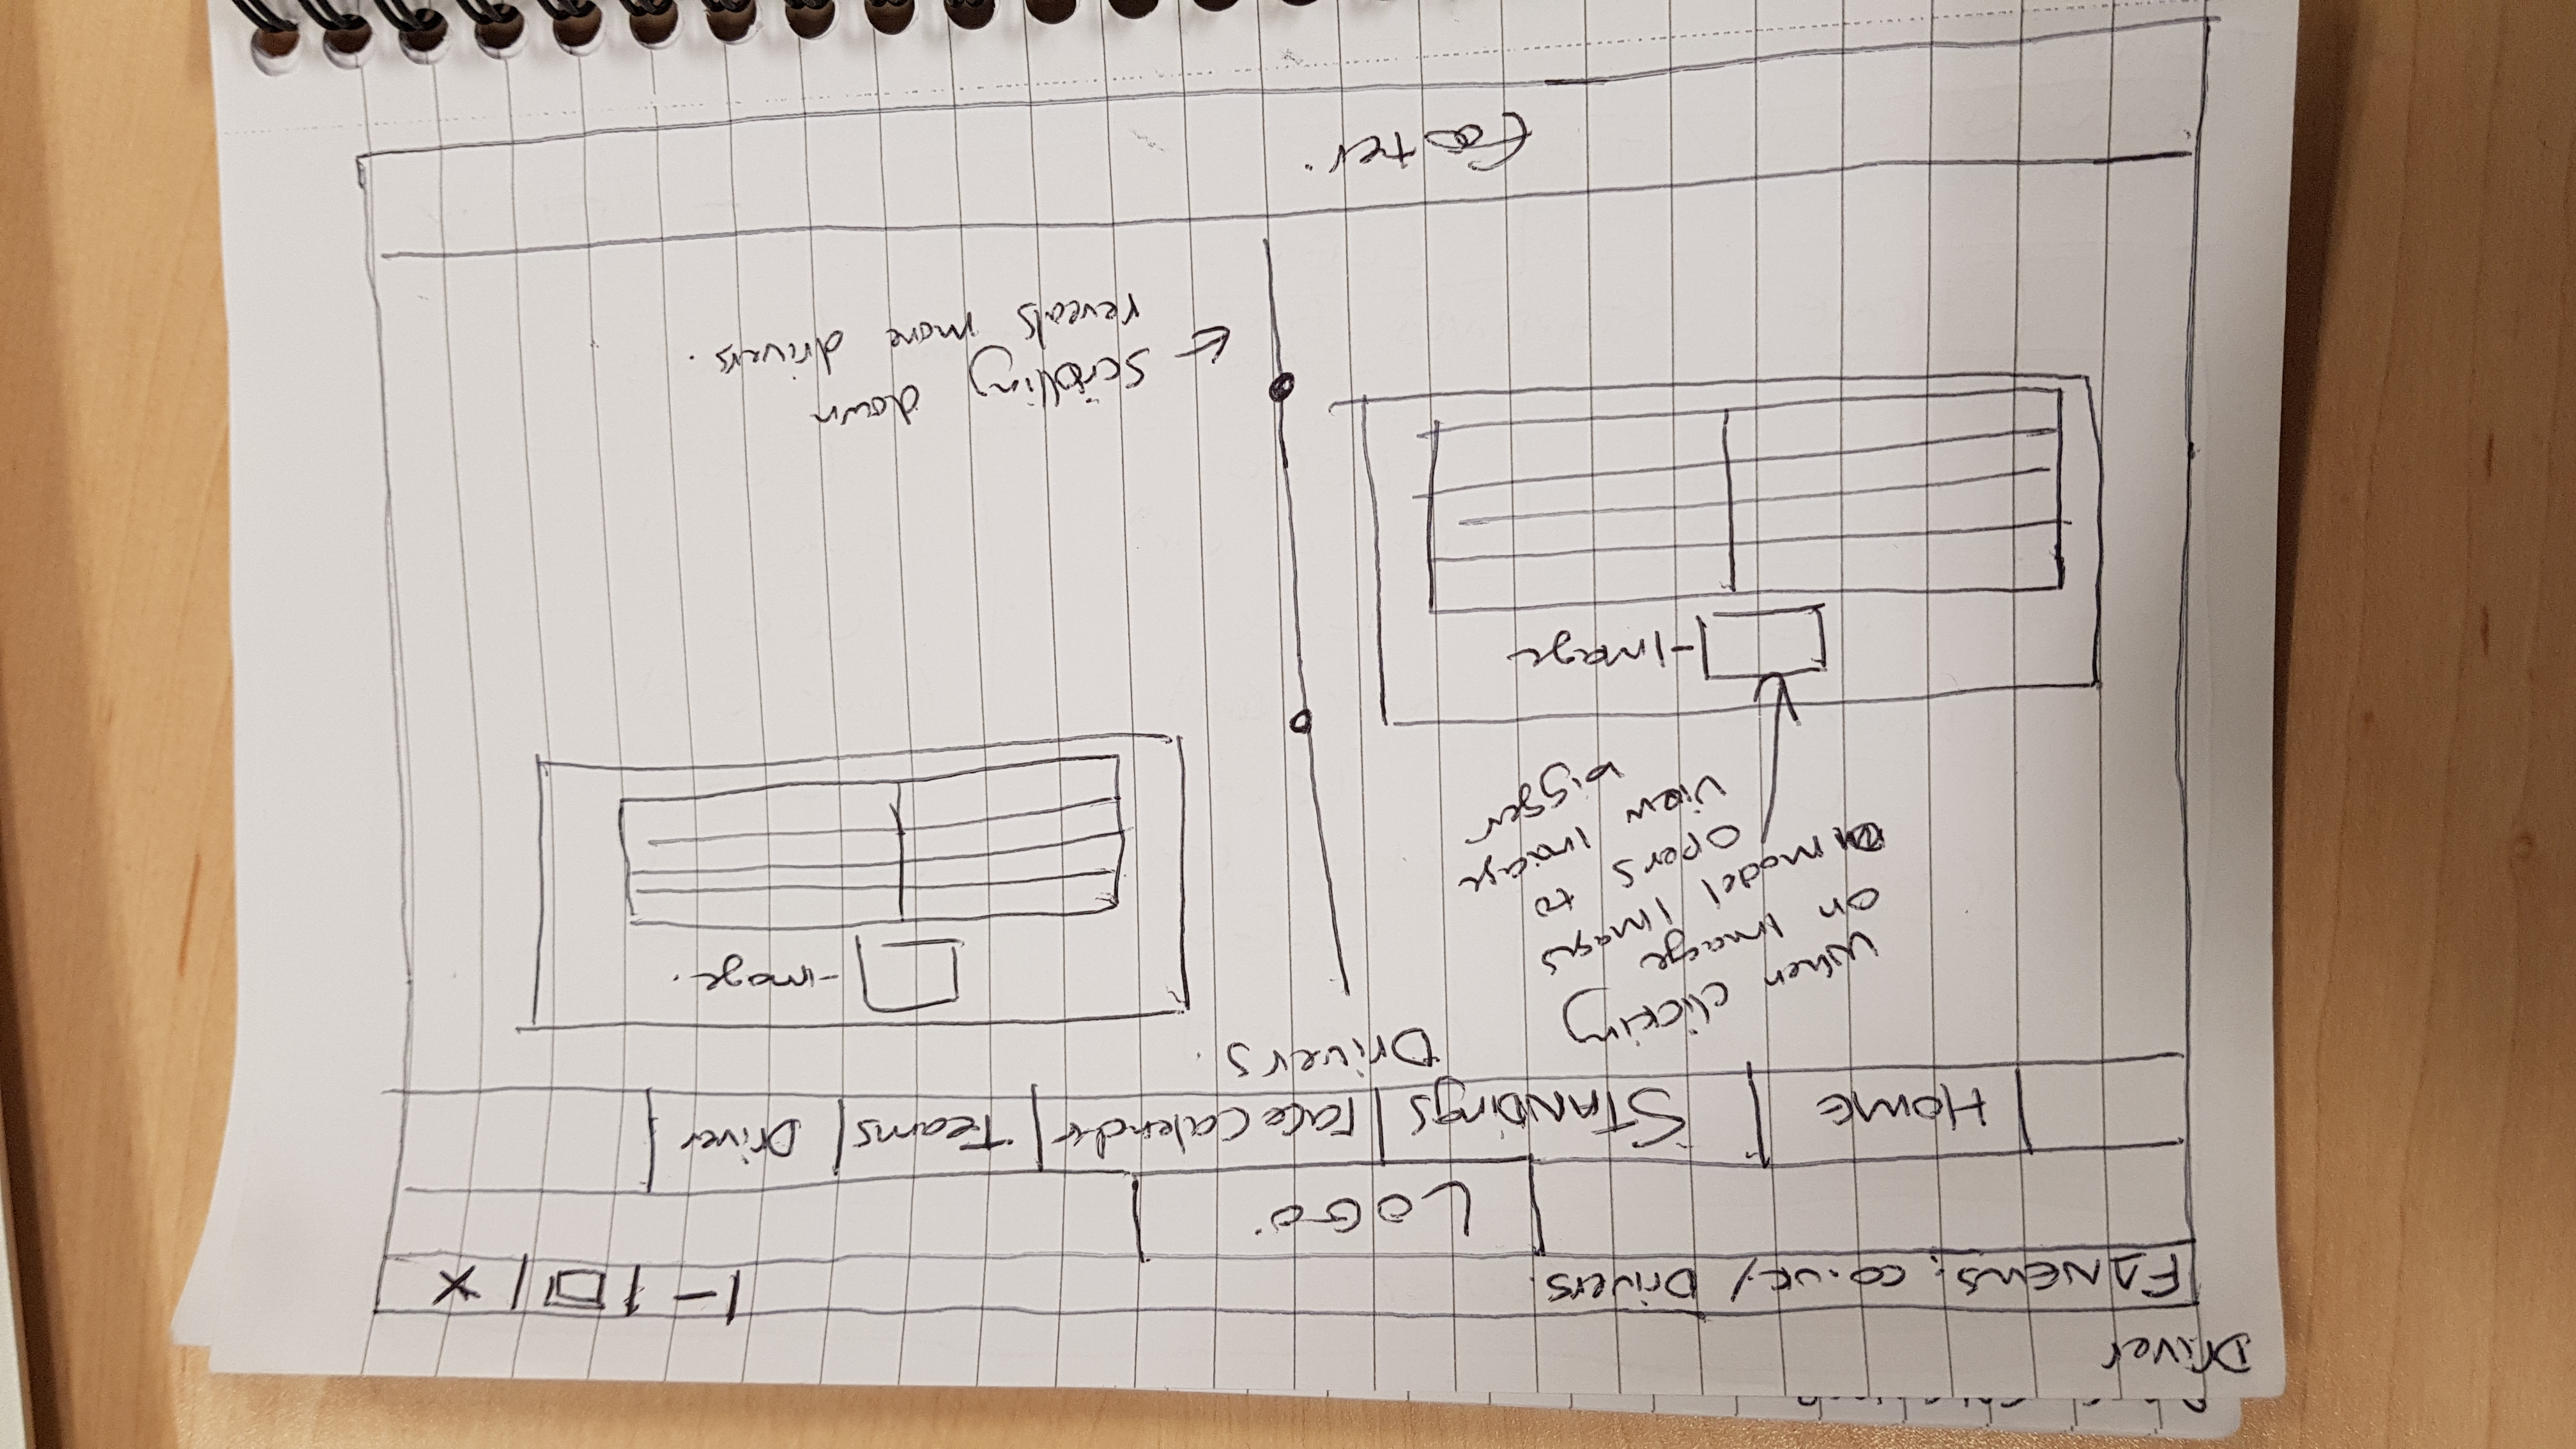 Driver
F1NEWS.co.uk/ Drivers.
LOGO
HOME
STANDings
race Calender
Teams
Driver
Drivers.
When clicking
on image
model images
opens to
view image
bigger
-image.
-Image
← scrolling down
reveals more drivers.
footer.